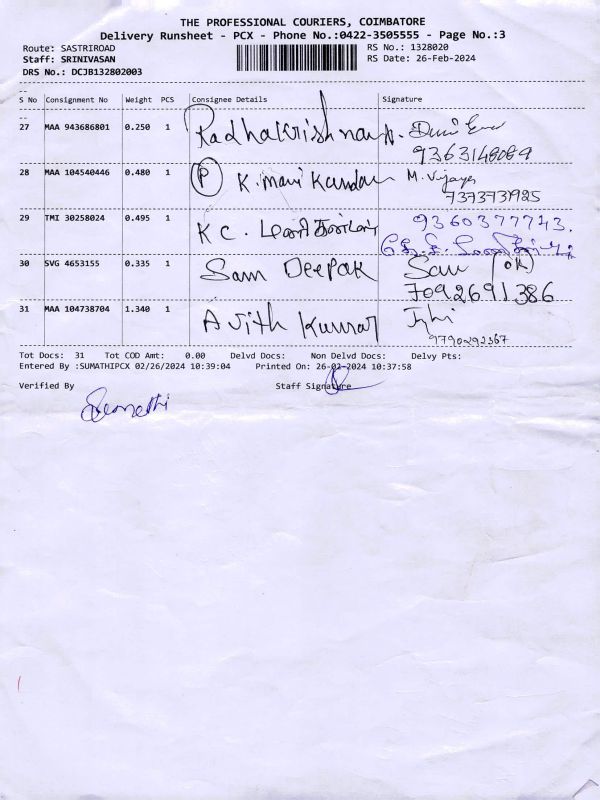 THE PROFESSIONAL COURIERS, COIMBATORE
Delivery Runsheet - PCX - Phone No.:0422-3505555 - Page No.:3
Route: SASTRIROAD RS No.: 1328020
Staff: SRINIVASAN RS Date: 26-Feb-2024
DRS No.: DCJB132802003
S No Consignment No Weight PCS Consignee Details Signature
27 MAA 943686801 0.250 1 Radhakrishnan
9363148089
28 MAA 104540446 0.480 1 P K. Mani Kandan M. Vijaya
7373731925
29 TMI 30258024 0.495 1 K C. 9360377743.
30 SVG 4653155 0.335 1 Sam Deepak Sam (OK)
7092691386
31 MAA 104738704 1.340 1 Ajith Kumar
9790292367
Tot Docs: 31 Tot COD Amt: 0.00 Delvd Docs: Non Delvd Docs: Delvy Pts:
Entered By :SUMATHIPCX 02/26/2024 10:39:04 Printed On: 26-02-2024 10:37:58
Verified By Staff Signature
Sumathi